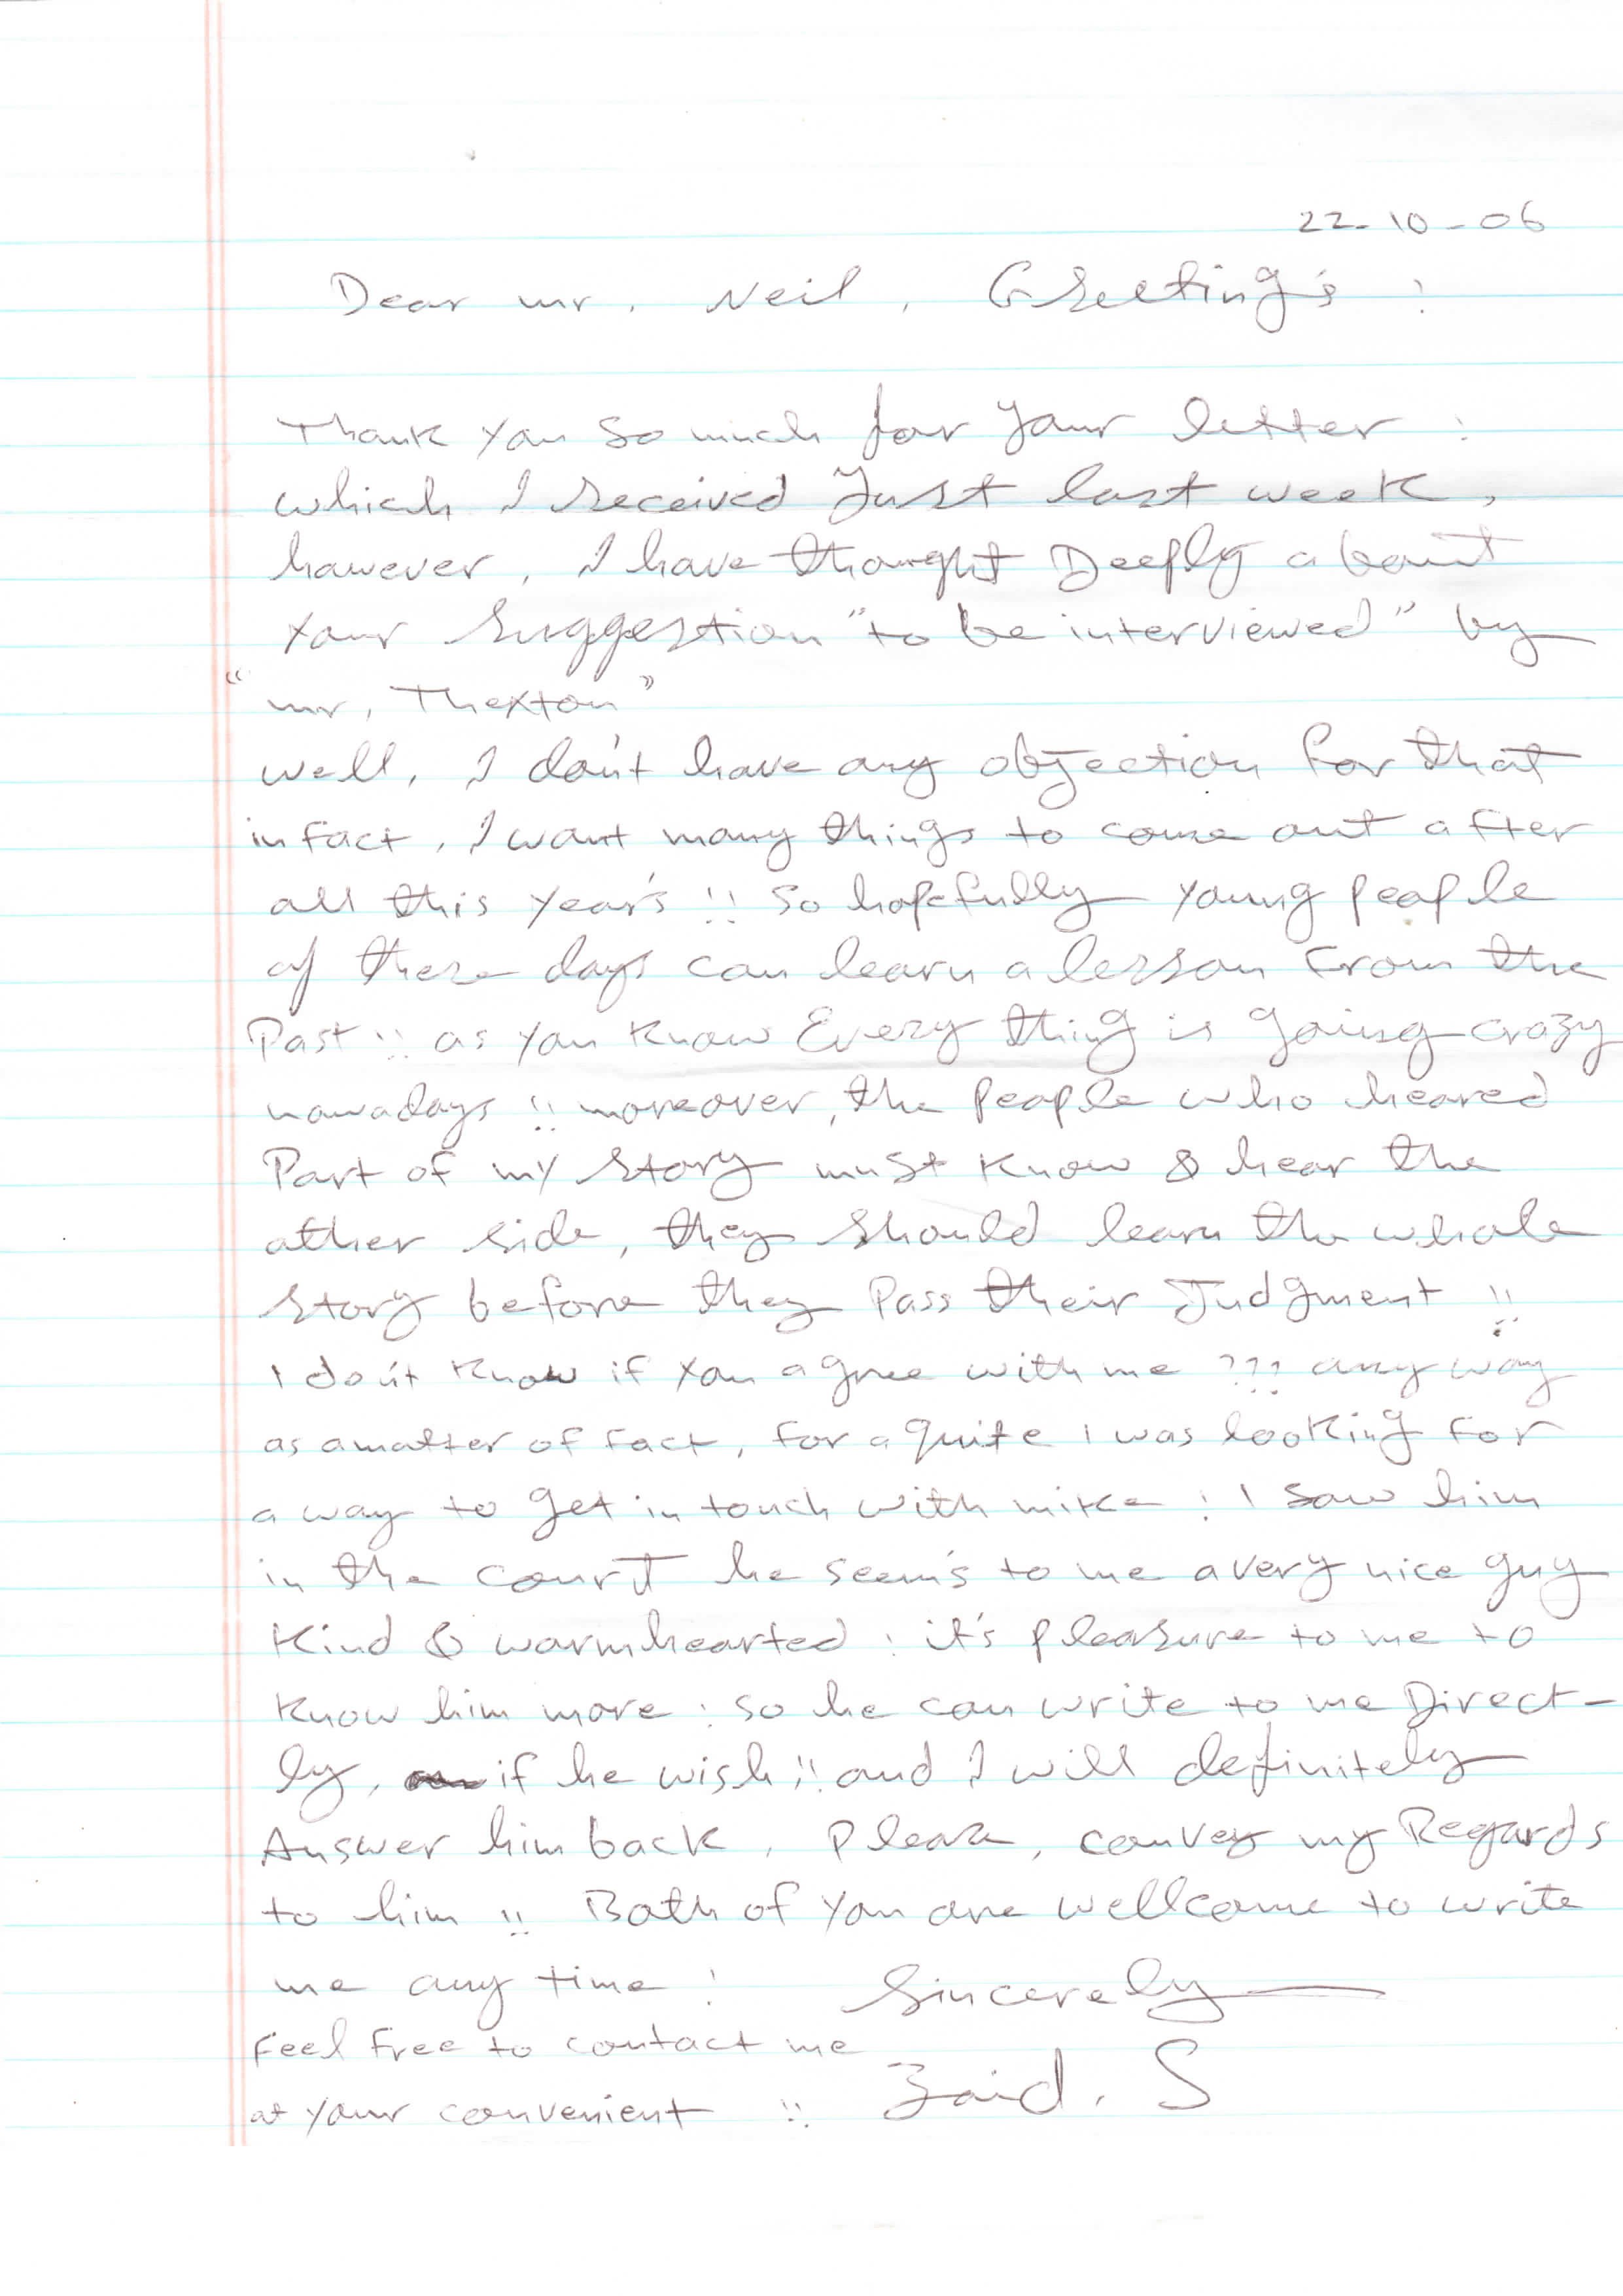 22-10-06
Dear mr. Neil, Greeting's !
Thank you so much for your letter :
which I received Just last week,
however, I have thought Deeply about
your suggestion "to be interviewed" by
"mr, Thexton"
well, I don't have any objection for that
in fact, I want many things to come out after
all this year's !! so hopefully young people
of these days can learn a lesson from the
Past !! as you know Every thing is going crazy
nowadays !! moreover, the people who heared
Part of my story must know & hear the
other side, they should learn the whole
story before they Pass their Judgment !!
I don't know if you agree with me ??? any way
as a matter of fact, for a quite I was looking for
a way to get in touch with mike ! I saw him
in the court he seem's to me a very nice guy
Kind & warmhearted : it's pleasure to me to
know him more : so he can write to me Direct-
ly, if he wish !! and I will definitely
Answer him back, please, convey my Regards
to him !! Both of you are wellcome to write
me any time ! Sincerely
Feel free to contact me
at your convenient !! Zaid. S